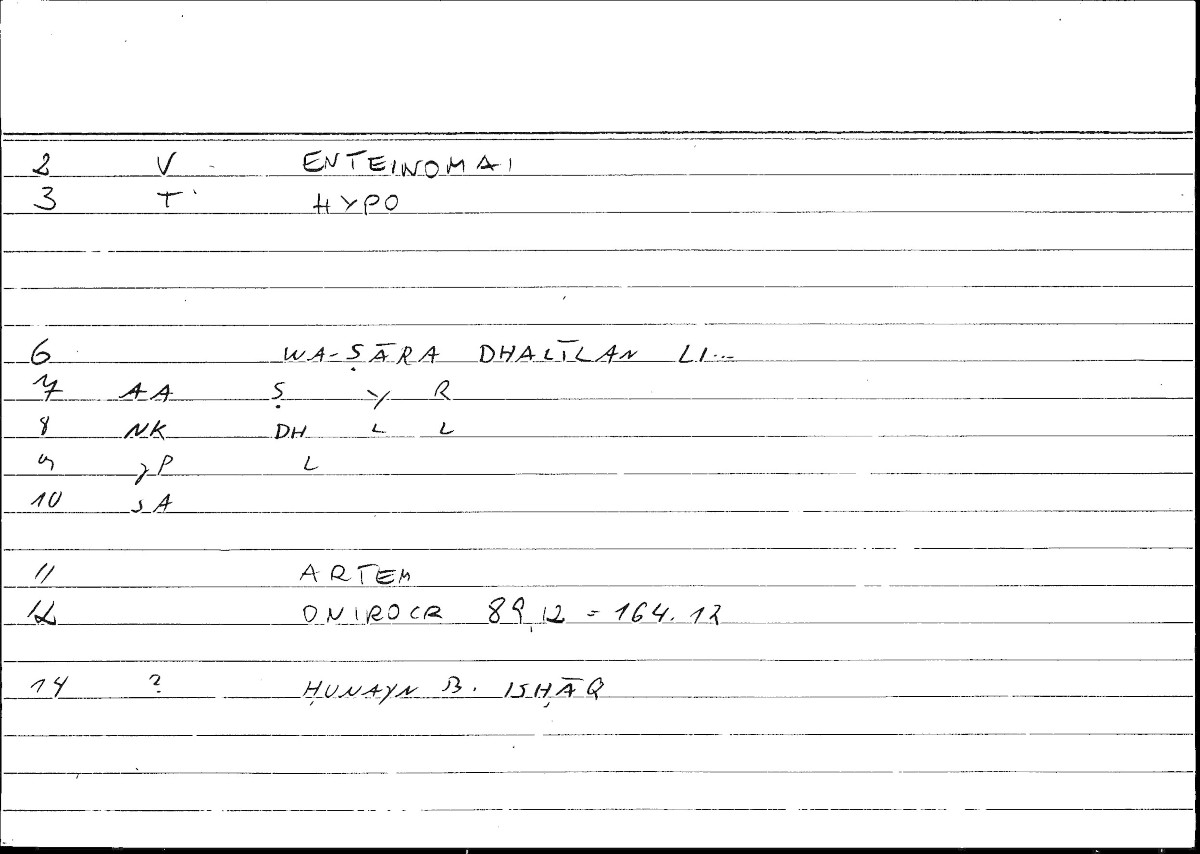 2 V ENTEINOMAI
3 T HYPO
6 WA-ṢĀRA DHALĪLAN LI...
7 AA Ṣ Y R
8 NK DH L L
9 γP L
10 sA
11 ARTEM
12 ONIROCR 89,12 = 164.12
14 ? ḤUNAYN B. ISḤĀQ